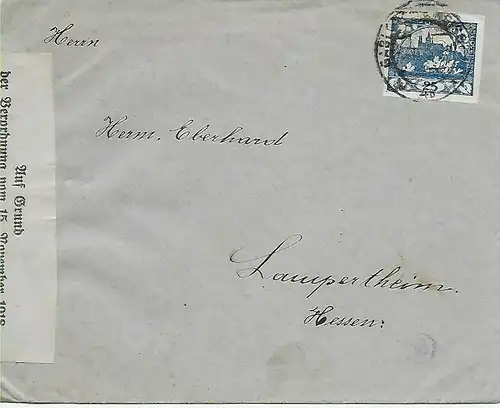 Herrn
Herm. Eberhard
Lampertheim.
Hessen:
Auf Grund
der Verordnung vom 15. November 1918
25